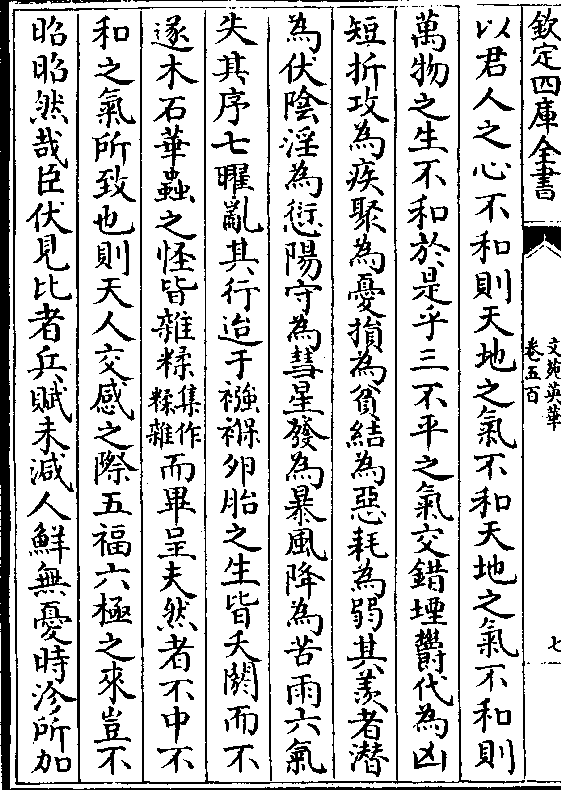 欽定四庫全書
文苑英華
卷五百
七
以君人之心不和則天地之氣不和天地之氣不和則
萬物之生不和於是乎三不平之氣交錯堙鬱代為凶
短折攻為疾聚為憂損為貧結為惡耗為弱其羨者潛
為伏陰淫為愆陽守為彗星發為暴風降為苦雨六氣
失其序七曜亂其行迨于襁褓卵胎之生皆夭閼而不
遂木石華蟲之怪皆雜糅集作糅雜而畢呈夫然者不中不
和之氣所致也則天人交感之際五福六極之來豈不
昭昭然哉臣伏見比者兵賦未減人鮮無憂時沴所加